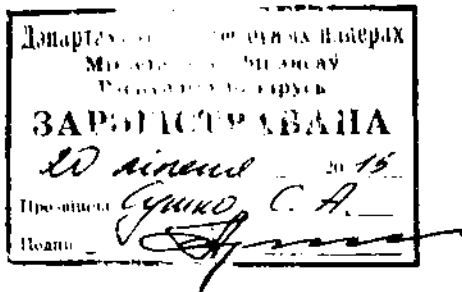 Дэпартамент па каштоўных паперах
Міністэрства фінансаў
Рэспублікі Беларусь
ЗАРЭГІСТРАВАНА
20 ліпеня 2015
Прозвішча Сушко С. А.
Подпіс